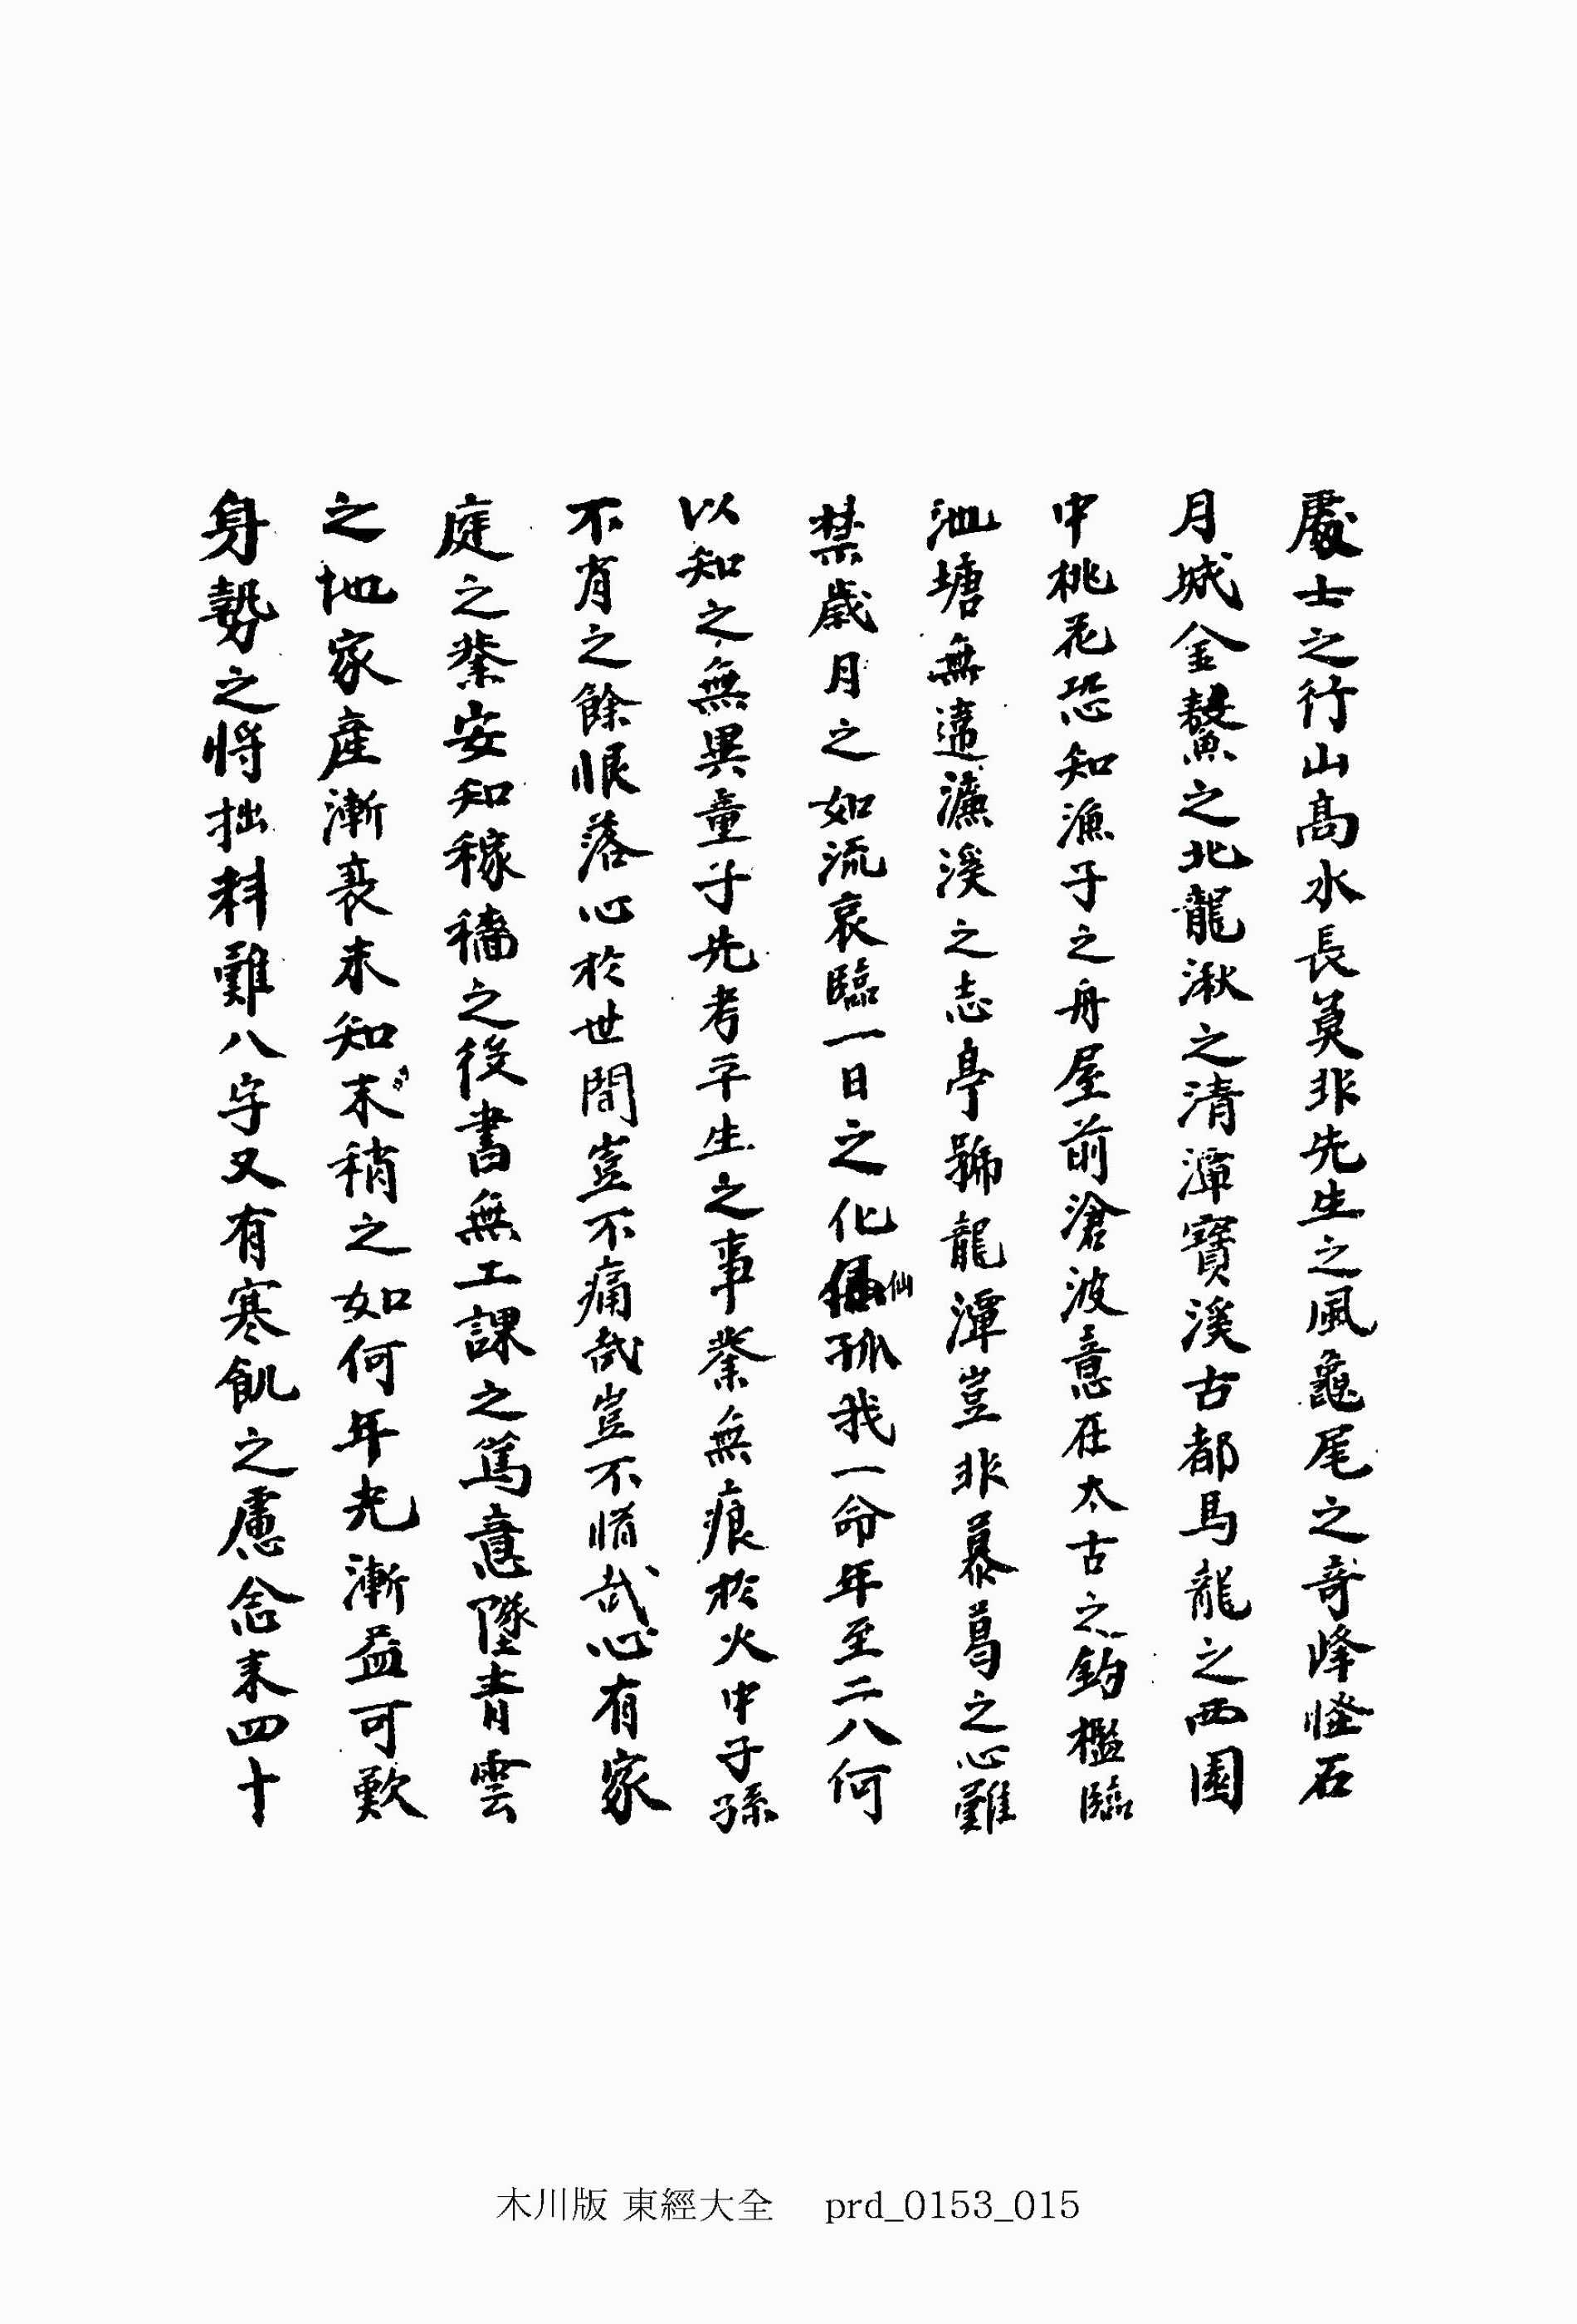 處士之行山高水長莫非先生之風龜尾之奇峰怪石
月城金鰲之北龍湫之清潭寶溪古都馬龍之西園
中桃花恐知漁子之舟屋前滄波意在太古之釣檻臨
池塘無違濂溪之志亭號龍潭豈非慕葛之心難
禁歲月之如流哀臨一日之化仙孤我一命年至二八何
以知之無異童子先考平生之事業無痕於火中子孫
不肖之餘恨落心於世間豈不痛哉豈不惜哉心有家
庭之業安知稼穡之役書無工課之篤意墜青雲
之地家產漸衰未知末稍之如何年光漸益可歎
身勢之將拙料難八字又有寒飢之慮念來四十
木川版 東經大全 prd_0153_015